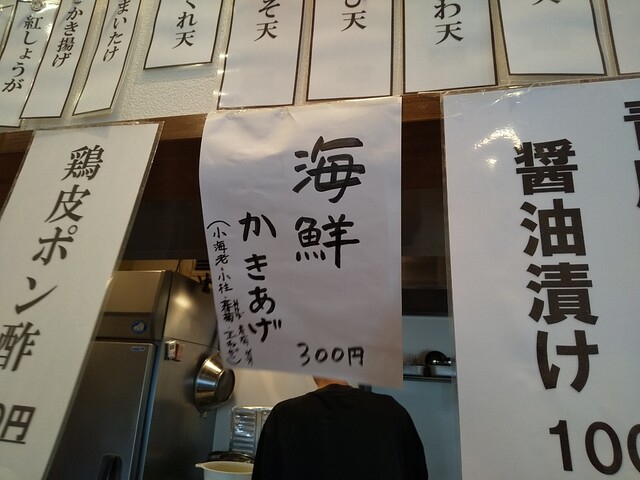 紅しょうが
かき揚げ
まいたけ
くれ天
そ天
天
わ天
天
鶏皮ポン酢
0円
海鮮
かきあげ
(小海老・小柱・春菊
300円
醤油漬け
100